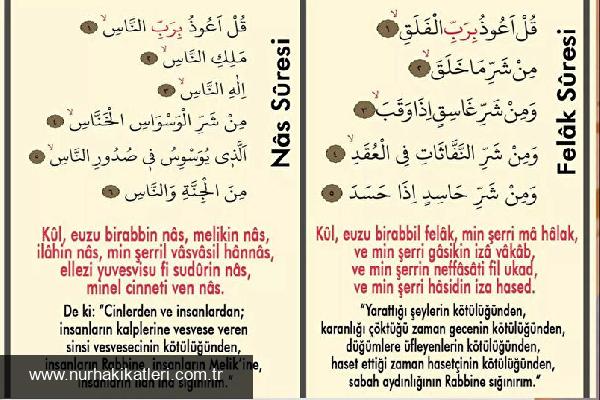 Nâs Sûresi
قُلْ اَعُوذُ بِرَبِّ النَّاسِۙ ﴿١﴾
مَلِكِ النَّاسِۙ ﴿٢﴾
اِلٰهِ النَّاسِۙ ﴿٣﴾
مِنْ شَرِّ الْوَسْوَاسِ الْخَنَّاسِۙ ﴿٤﴾
اَلَّذ۪ى يُوَسْوِسُ ف۪ى صُدُورِ النَّاسِۙ ﴿٥﴾
مِنَ الْجِنَّةِ وَالنَّاسِ ﴿٦﴾
Kûl, euzu birabbin nâs, melikin nâs,
ilâhin nâs, min şerril vâsvâsil hânnâs,
ellezi yuvesvisu fi sudûrin nâs,
minel cinneti ven nâs.
De ki: "Cinlerden ve insanlardan;
insanların kalplerine vesvese veren
sinsi vesvesecinin kötülüğünden,
insanların Rabbine, insanların Melik'ine,
insanların İlah'ına sığınırım."
Felâk Sûresi
قُلْ اَعُوذُ بِرَبِّ الْفَلَقِۙ ﴿١﴾
مِنْ شَرِّ مَا خَلَقَۙ ﴿٢﴾
وَمِنْ شَرِّ غَاسِقٍ اِذَا وَقَبَۙ ﴿٣﴾
وَمِنْ شَرِّ النَّفَّاثَاتِ فِى الْعُقَدِۙ ﴿٤﴾
وَمِنْ شَرِّ حَاسِدٍ اِذَا حَسَدَ ﴿٥﴾
Kûl, euzu birabbil felâk, min şerri mâ hâlak,
ve min şerri gâsikin izâ vâkâb,
ve min şerrin neffâsâti fil ukad,
ve min şerri hâsidin iza hased.
"Yarattığı şeylerin kötülüğünden,
karanlığı çöktüğü zaman gecenin kötülüğünden,
düğümlere üfleyenlerin kötülüğünden,
haset ettiği zaman hasetçinin kötülüğünden,
sabah aydınlığının Rabbine sığınırım."
www.nurhakikatleri.com.tr